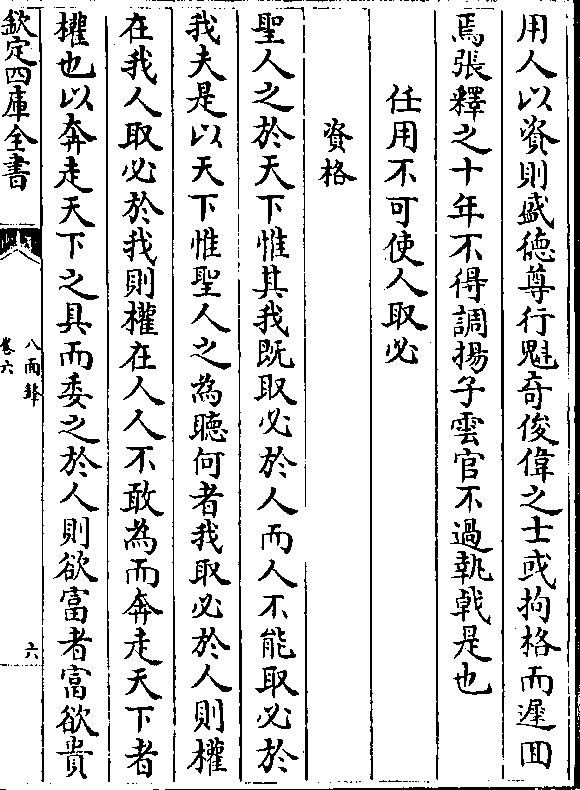 用人以資則盛德尊行魁奇俊偉之士或拘格而遲回
焉張釋之十年不得調揚子雲官不過執戟是也
任用不可使人取必
資格
聖人之於天下惟其我既取必於人而人不能取必於
我夫是以天下惟聖人之為聽何者我取必於人則權
在我人取必於我則權在人人不敢為而奔走天下者
權也以奔走天下之具而委之於人則欲富者富欲貴
欽定四庫全書
八面鋒
卷六
六